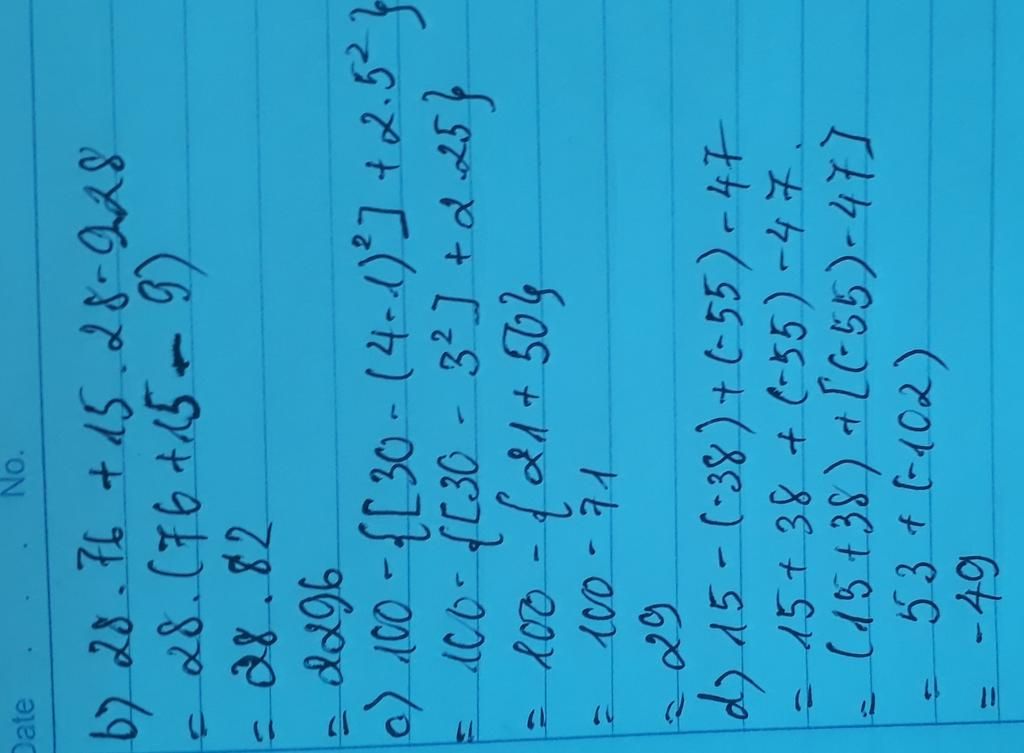 Date . . . No.
b) 28 . 76 + 15 . 28 - 9.28
= 28 . (76 + 15 - 9)
= 28 . 82
= 2296
c) 100 - {[30 - (4 - 1)²] + 2.5²}
= 100 - {[30 - 3²] + 2.25}
= 100 - {21 + 50}
= 100 - 71
= 29
d) 15 - (-38) + (-55) - 47
= 15 + 38 + (-55) - 47.
= (15 + 38) + [(-55) - 47]
= 53 + (-102)
= -49